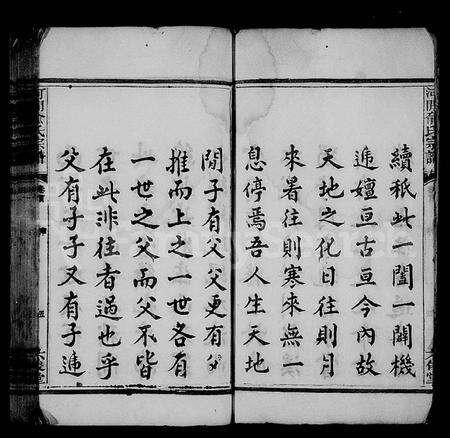 續祇此一闔一闢機
遞嬗亘古亘今內故
天地之化日往則月
來暑往則寒來無一
息停焉吾人生天地
間子有父父更有父
推而上之一世各有
一世之父而父不皆
在此非往者過也乎
父有子子又有子遞